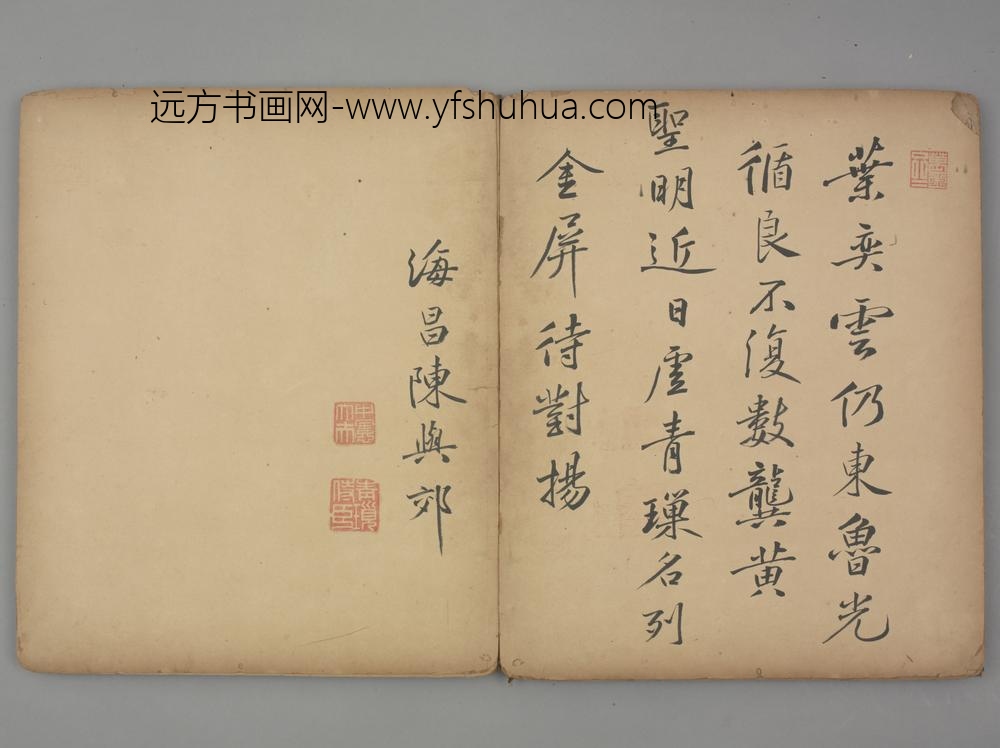 远方书画网-www.yfshuhua.com
葉奕雲仍東魯光
循良不復數龔黄
聖明近日虛青瑣名列
金屏待對揚
海昌陳與郊